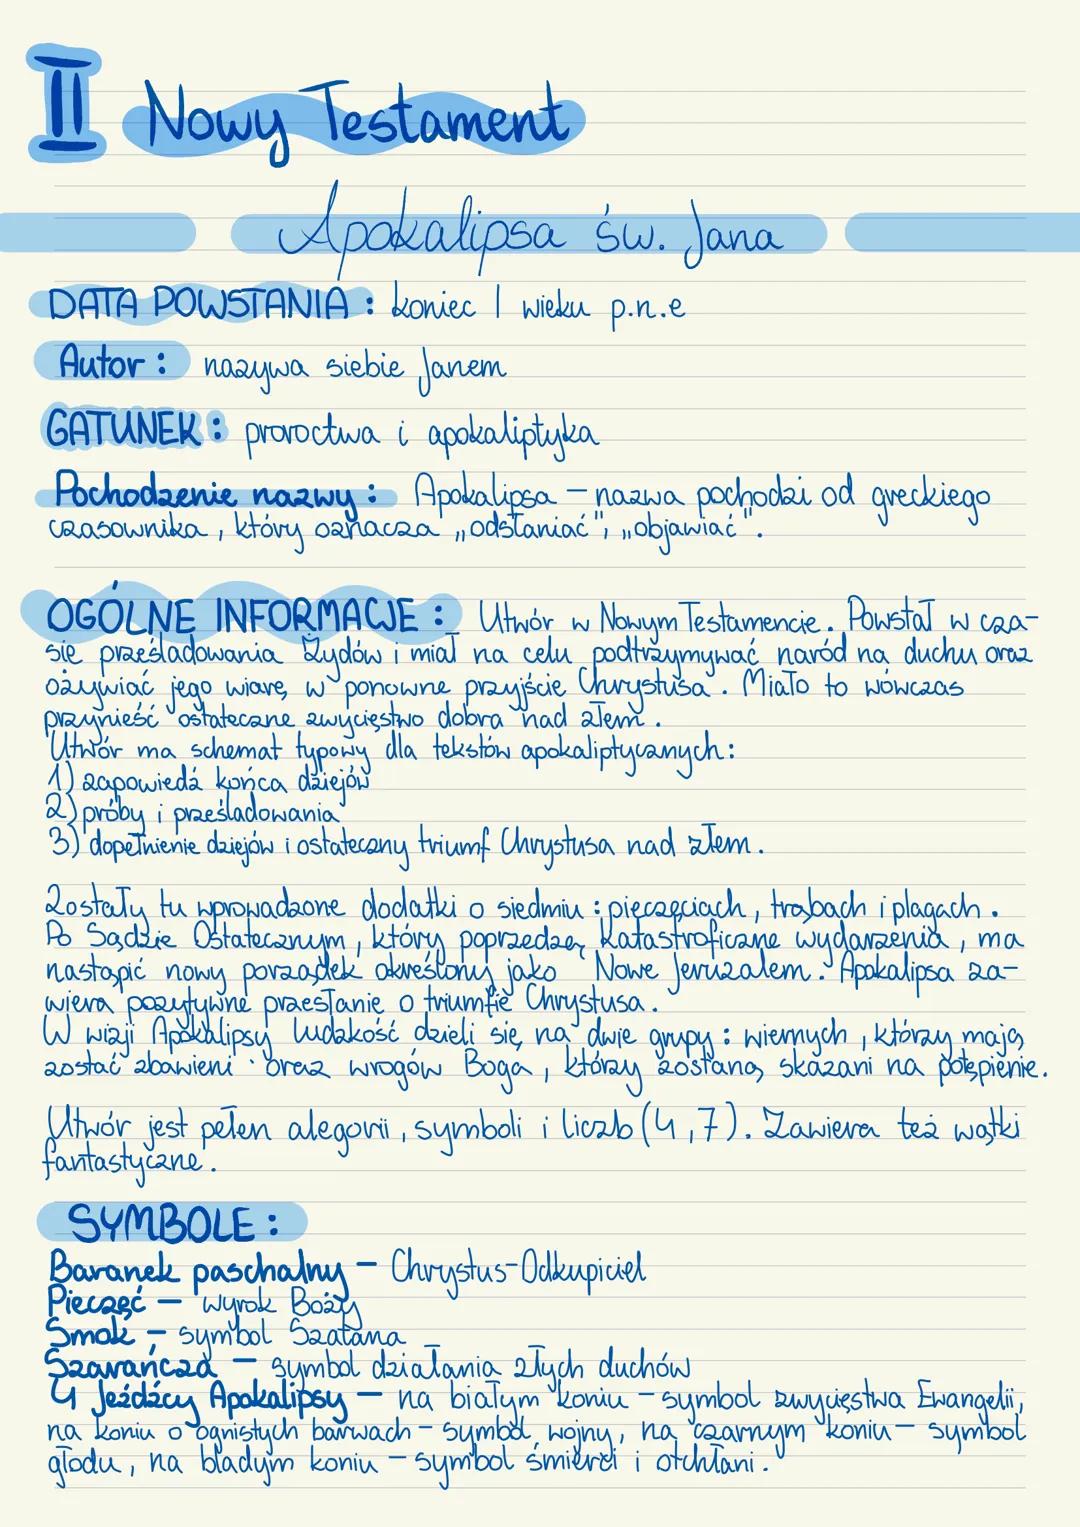 II Nowy Testament
Apokalipsa św. Jana
DATA POWSTANIA: koniec I wieku p.n.e
Autor: nazywa siebie Janem
GATUNEK: proroctwa i apokaliptyka
Pochodzenie nazwy: Apokalipsa – nazwa pochodzi od greckiego
czasownika, który oznacza „odsłaniać", „objawiać".
OGÓLNE INFORMACJE: Utwór w Nowym Testamencie. Powstał w cza-
sie prześladowania Żydów i miał na celu podtrzymywać naród na duchu oraz
ożywiać jego wiarę w ponowne przyjście Chrystusa. Miało to wówczas
przynieść ostateczne zwycięstwo dobra nad złem.
Utwór ma schemat typowy dla tekstów apokaliptycznych:
1) zapowiedź końca dziejów
2) próby i prześladowania
3) dopełnienie dziejów i ostateczny triumf Chrystusa nad złem.
Zostały tu wprowadzone dodatki o siedmiu: pieczęciach, trąbach i plagach.
Po Sądzie Ostatecznym, który poprzedzą katastroficzne wydarzenia, ma
nastąpić nowy porządek określony jako Nowe Jeruzalem. Apokalipsa za-
wiera pozytywne przesłanie o triumfie Chrystusa.
W wizji Apokalipsy ludzkość dzieli się na dwie grupy: wiernych, którzy mają
zostać zbawieni oraz wrogów Boga, którzy zostaną skazani na potępienie.
Utwór jest pełen alegorii, symboli i liczb (4,7). Zawiera też wątki
fantastyczne.
SYMBOLE:
Baranek paschalny – Chrystus-Odkupiciel
Pieczęć – wyrok Boży
Smok – symbol Szatana
Szarańcza – symbol działania złych duchów
4 Jeźdźcy Apokalipsy – na białym koniu – symbol zwycięstwa Ewangelii,
na koniu o ognistych barwach – symbol wojny, na czarnym koniu – symbol
głodu, na bladym koniu – symbol śmierci i otchłani.